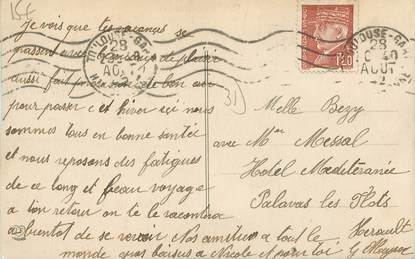 Je vois que tes vacances se
passent avec beaucoup de plaisir
aussi fait provision de bon air
pour passer cet hiver ici nous
sommes tous en bonne santé
et nous reposons des fatigues
de ce long et beau voyage
a ton retour on te le racontera
a bientot de se revoir Nos amitiés a tout le
monde gros baisers a Nicole et pour toi
31
Melle Bezy
avec Mme Messal
Hotel Mediteranée
Palavas les Flots
Herault
TOULOUSE-GARE
28
AOUT
1F20
TOULOUSE-GARE
28
40
AOUT